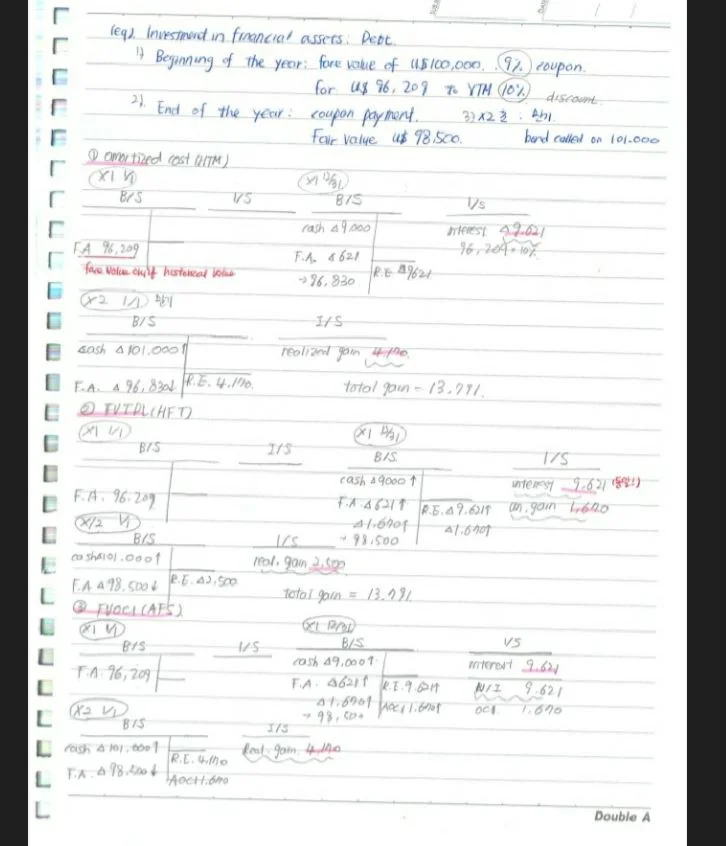 (eg2. Investment in financial assets: Debt.
1) Beginning of the year: face value of U$100,000. 9% coupon.
for U$ 96,209 to YTM 10% discount
2). End of the year: coupon payment. 3) X2 초: 만기
Fair value U$ 98,500. bond called on 101.000
① amortized cost (HTM)
X1 1/1 X1 12/31
B/S I/S B/S I/S
cash Δ9,000 interest Δ9.621
F.A 96,209 F.A. Δ621 R.E Δ9621 96,209×10%
face value only if historical value → 96,830
X2 1/1 만기
B/S I/S
cash Δ101.000↑ realized gain 4,170.
F.A. Δ96,830↓ R.E. 4,170. total gain = 13,791.
② FVTPL (HFT)
X1 1/1 X1 12/31
B/S I/S B/S. I/S
cash Δ9000↑ interest 9,621 (동일!)
F.A. 96,209 F.A Δ621↑ R.E. Δ9.621↑ un. gain 1,670
X/2 1/1 Δ1.670↑ Δ1.670↑
B/S I/S → 98,500
cash Δ101.000↑ real. gain 2,500
F.A Δ98,500↓ R.E. Δ2,500 total gain = 13,791.
③ FVOCI (AFS)
X1 1/1 X1 12/31
B/S I/S B/S I/S
cash Δ9,000↑ interest 9,621
F.A. 96,209 F.A. Δ621↑ R.E. 9.621↑ N/I 9,621
Δ1,670↑ AOCI 1,670↑ OCI. 1,670
X2 1/1 → 98,500
B/S I/S
cash Δ101,000↑ R.E. 4,170 Real. gain 4,170
F.A. Δ98,500↓ AOCI 1,670
Double A